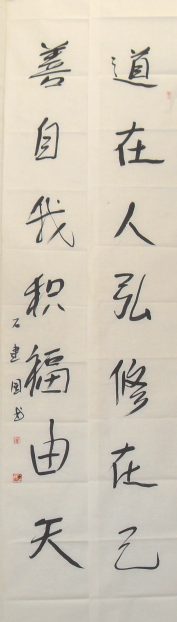 道在人弘修在己
善自我积福由天
石建国书